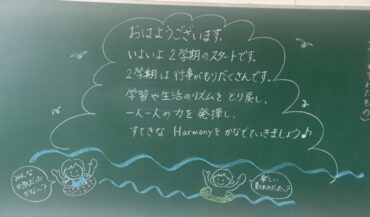 おはようございます。
いよいよ2学期のスタートです。
2学期は行事がもりだくさんです。
学習や生活のリズムをとり戻し、
一人一人の力を発揮し、
すてきな Harmonyをかなでていきましょう♪
みんな
元気だった
かな〜?
楽しい
夏休みだった〜?